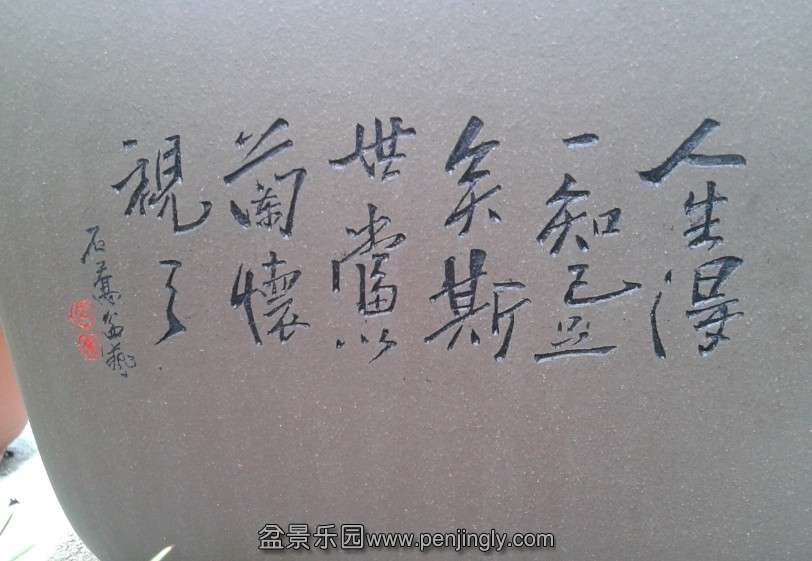 人生得
一知己足
矣斯
世當以
蘭懷
視之
石騫盆藝
盆景乐园www.penjingly.com